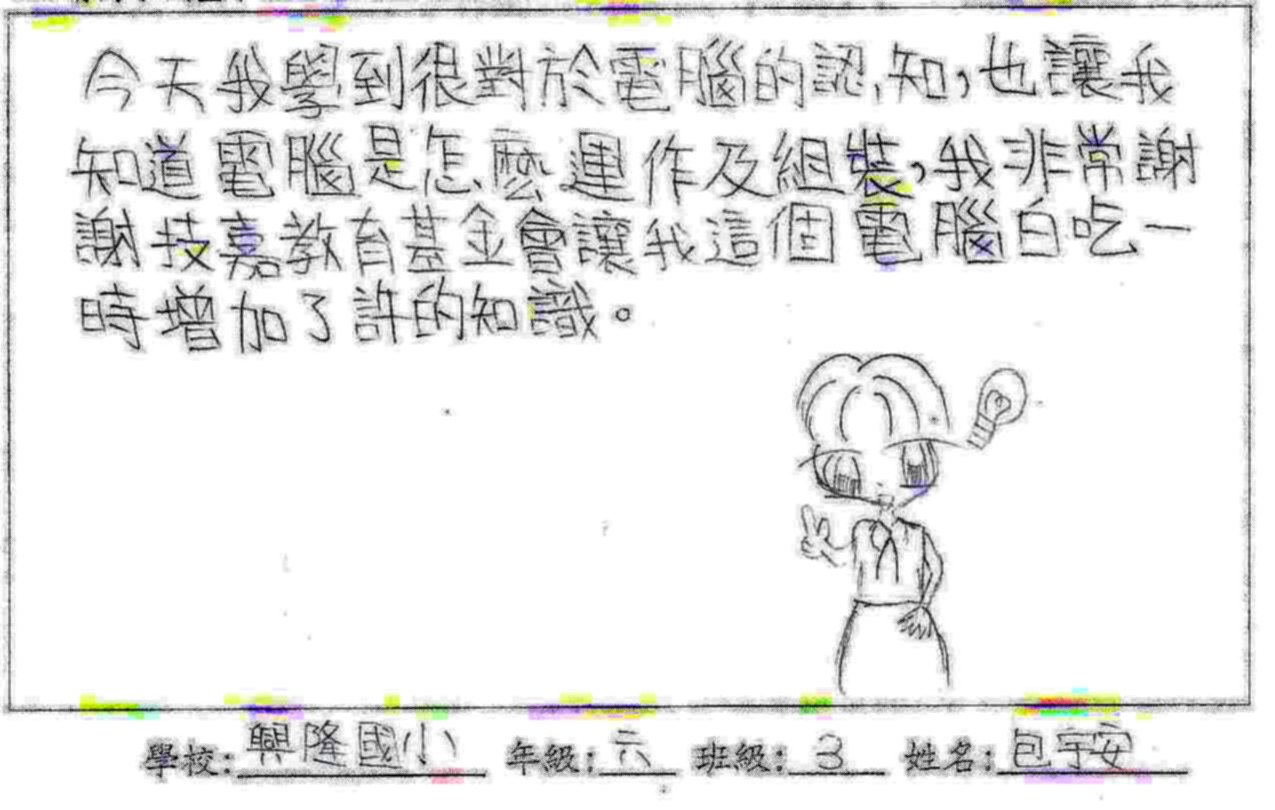 今天我學到很對於電腦的認知，也讓我
知道電腦是怎麼運作及組裝，我非常謝
謝技嘉教育基金會讓我這個電腦白吃一
時增加了許的知識。
學校：興隆國小 年級：六 班級：3 姓名：包宇安